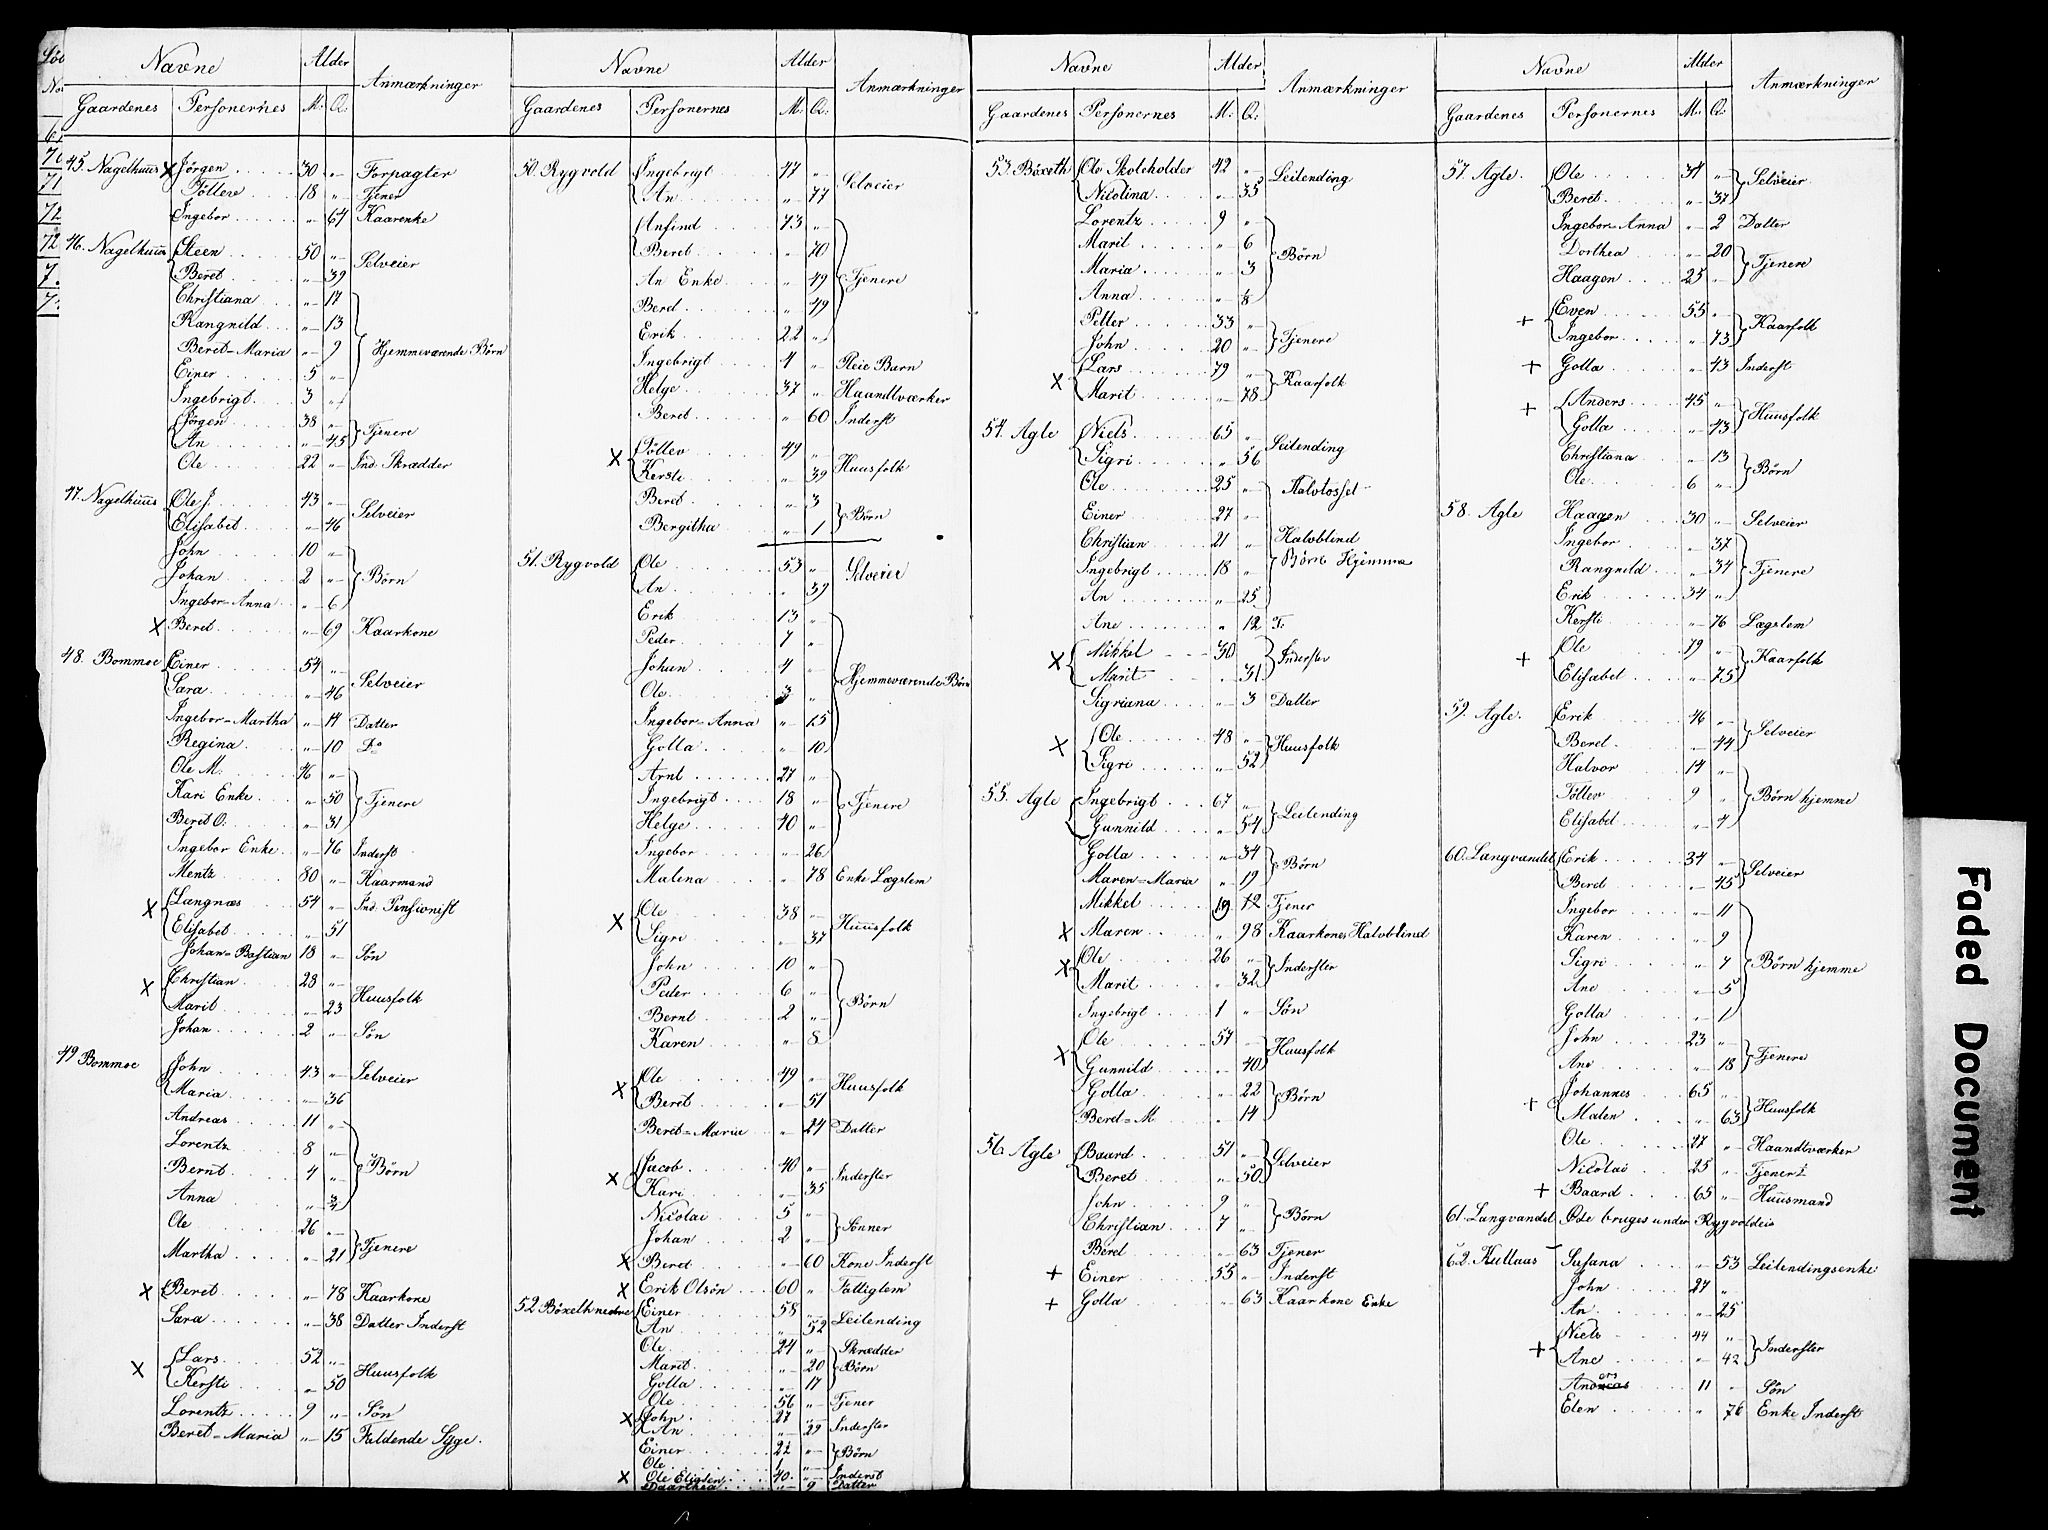 Navne Alder Anmærkninger
Gaardenes Personernes M: Q:
45. Nagelhuus Jörgen 30 " Forpagter
Töllere 18 " Tjener
Ingebor " 64 Kaarenke
46. Nagelhuus Steen 50 " Selveier
Beret " 39
Christiana " 17
Rangnild " 13
Beret=Maria " 9 Hjemmeværende Børn
Einer 5 "
Ingebrigt 3 "
Jörgen 38 " Tjenere
An " 45
Ole 22 " Ind. Skrædder
47. Nagelhuus Ole J. 43 " Selveier
Elisabet " 46
John 10 "
Johan 2 " Børn
Ingebor=Anna " 6
x Beret " 69 Kaarkone
48. Bommoe Einer 54 " Selveier
Sara " 46
Ingebor=Martha " 14 Datter
Regina " 10 Do
Ole M. 46 "
Kari Enke " 50 Tjenere
Beret O. " 31
Ingebor Enke " 76 Inderst
Mentz 80 " Kaarmand
x Langnæs 54 " Ind. Pensionist
Elisabet " 51
Johan=Bastian 18 " Søn
x Christian 28 " Huusfolk
Marit " 23
Johan 2 " Søn
49 Bommoe John 43 " Selveier
Maria " 36
Andreas 11 "
Lorentz 8 "
Bernt 4 " Børn
Anna "
Ole 26 " Tjenere
Martha " 21
x Beret " 78 Kaarkone
Sara " 38 Datter Inderst
x Lars 52 " Huusfolk
Kersti " 50
Lorentz 9 " Søn
Beret=Maria " 15 Faldende Syge.
Navne Alder Anmærkninger
Gaardenes Personernes M: Q:
50. Rygvold Ingebrigt 47 " Selveier
An " 77
Anfind 73 "
Beret " 70
An Enke " 49 Tjenere
Berd " 49
Erik 22 "
Ingebrigt 4 " Pleie Barn
Helge 37 " Haandtværker
Beret " 60 Inderst
x Töllev 49 " Huusfolk
Kersti " 39
Beret " 3 Børn
Bergitha " 1
51. Rygvold Ole 53 " Selveier
An " 39
Erik 13 "
Peder 7 "
Johan 4 " Hjemmeværende Børn
Ole 3 "
Ingebor=Anna " 15
Golla " 10
Arnt 27 "
Ingebrigt 18 " Tjenere
Helge 40 "
Ingebor " 26
Malena " 78 Enke Lægslem
x Ole 38 " Huusfolk
Sigri " 37
John 10 "
Peder 6 " Børn
Bernt 2 "
Karen " 8
x Ole 49 " Huusfolk
Beret " 51
Beret=Maria " 24 Datter
x Jacob 40 " Inderster
Kari " 35
Nicolai 5 " Sønner
Johan 2 "
x Beret " 60 Kone Inderst
x Erik Olsön 60 " Fattiglem
52 Böxelknedne Einer 58 " Leilending
An " 52
Ole 24 " Skrædder
Marit " 20 Børn
Golla " 17
Ole 56 " Tjener
x John 27 " Inderster
An " 29
Einer 22 " Børn
Ole 1 "
x Ole Eligsen 40. " Inderst
Daarthea " 9 Datter
Navne Alder Anmærkninger
Gaardenes Personernes M: Q:
53. Böxeth Ole Skoleholder 42 " Leilending
Nicolina " 35
Lorentz 9 "
Marit " 6 Børn
Maria " 3
Anna "
Petter 33 " Tjenere
John 20 "
x Lars 79 " Kaarfolk
Marit " 78
54. Agle Niels 65 " Leilending
Sigri " 56
Ole 25 " Halvtosset
Einer 27 "
Christian 21 " Halvblind
Ingebrigt 18 " Børn Hjemme
An " 25
Ane " 12 T:
x Mikkel 30 Inderster
Marit " 31
Sigriana " 3 Datter
x Ole 48 " Huusfolk
Sigri " 52
55. Agle Ingebrigt 67 " Leilending
Gunnild " 54
Golla " 34 Børn
Maren=Maria " 19
Mikkel 19 12 Tjener
x Maren " 98 Kaarkones Halvblind
x Ole 26 " Inderster
Marit " 32
Ingebrigt 1 " Søn
x Ole 57 " Huusfolk
Gunnild " 40
Golla " 22 Børn
Beret=M. " 14
56. Agle Baard 51 " Selveier
Beret " 50
John 9 " Børn
Christian 7 "
Beret " 63 Tjener
+ Einer 55 " Inderst
+ Golla " 63 Kaarkone Enke
Navne Alder Anmærkninger
Gaardenes Personernes M: Q:
57. Agle. Ole 34 " Selveier
Beret " 37
Ingebor=Anna " 2 Datter
Dorthea " 20 Tjenere
Haagen 25 "
+ Even 55 " Kaarfolk
Ingebor " 73
+ Golla " 43 Inderst
+ Anders 45 " Huusfolk
Golla " 43
Christiana " 13 Børn
Ole 6 "
58. Agle Haagen 30 " Selveier
Ingebor " 37
Rangnild " 34 Tjenere
Erik 34 "
Kersti " 76 Lægslem
+ Ole 79 " Kaarfolk
Elisabet " 75
59. Agle. Erik 46 " Selveier
Beret " 44
Halvor 14 "
Töllev 9 " Børn hjemme
Elisabet " 4
60. Langvandet Erik 34 " Selveier
Beret " 45
Ingebor " 11
Karen " 9
Sigri " 7 Børn hjemme
Ane " 5
Golla " 1
John 23 " Tjenere
Ane " 18
+ Johannes 65 " Huusfolk
Malen " 63
Ole 27 " Haandtværker
Nicolai 25 " Tjener
+ Baard 65 " Huusmand
61. Langvandet Öde bruges under Rygvoldeie
62. Kullaas Susana " 53 Leilendingsenke
John 27 "
An " 25
+ Niels 44 " Inderster
Ane " 42
Andreas 11 " Søn
Elen " 76 Enke Inderst
Faded Document